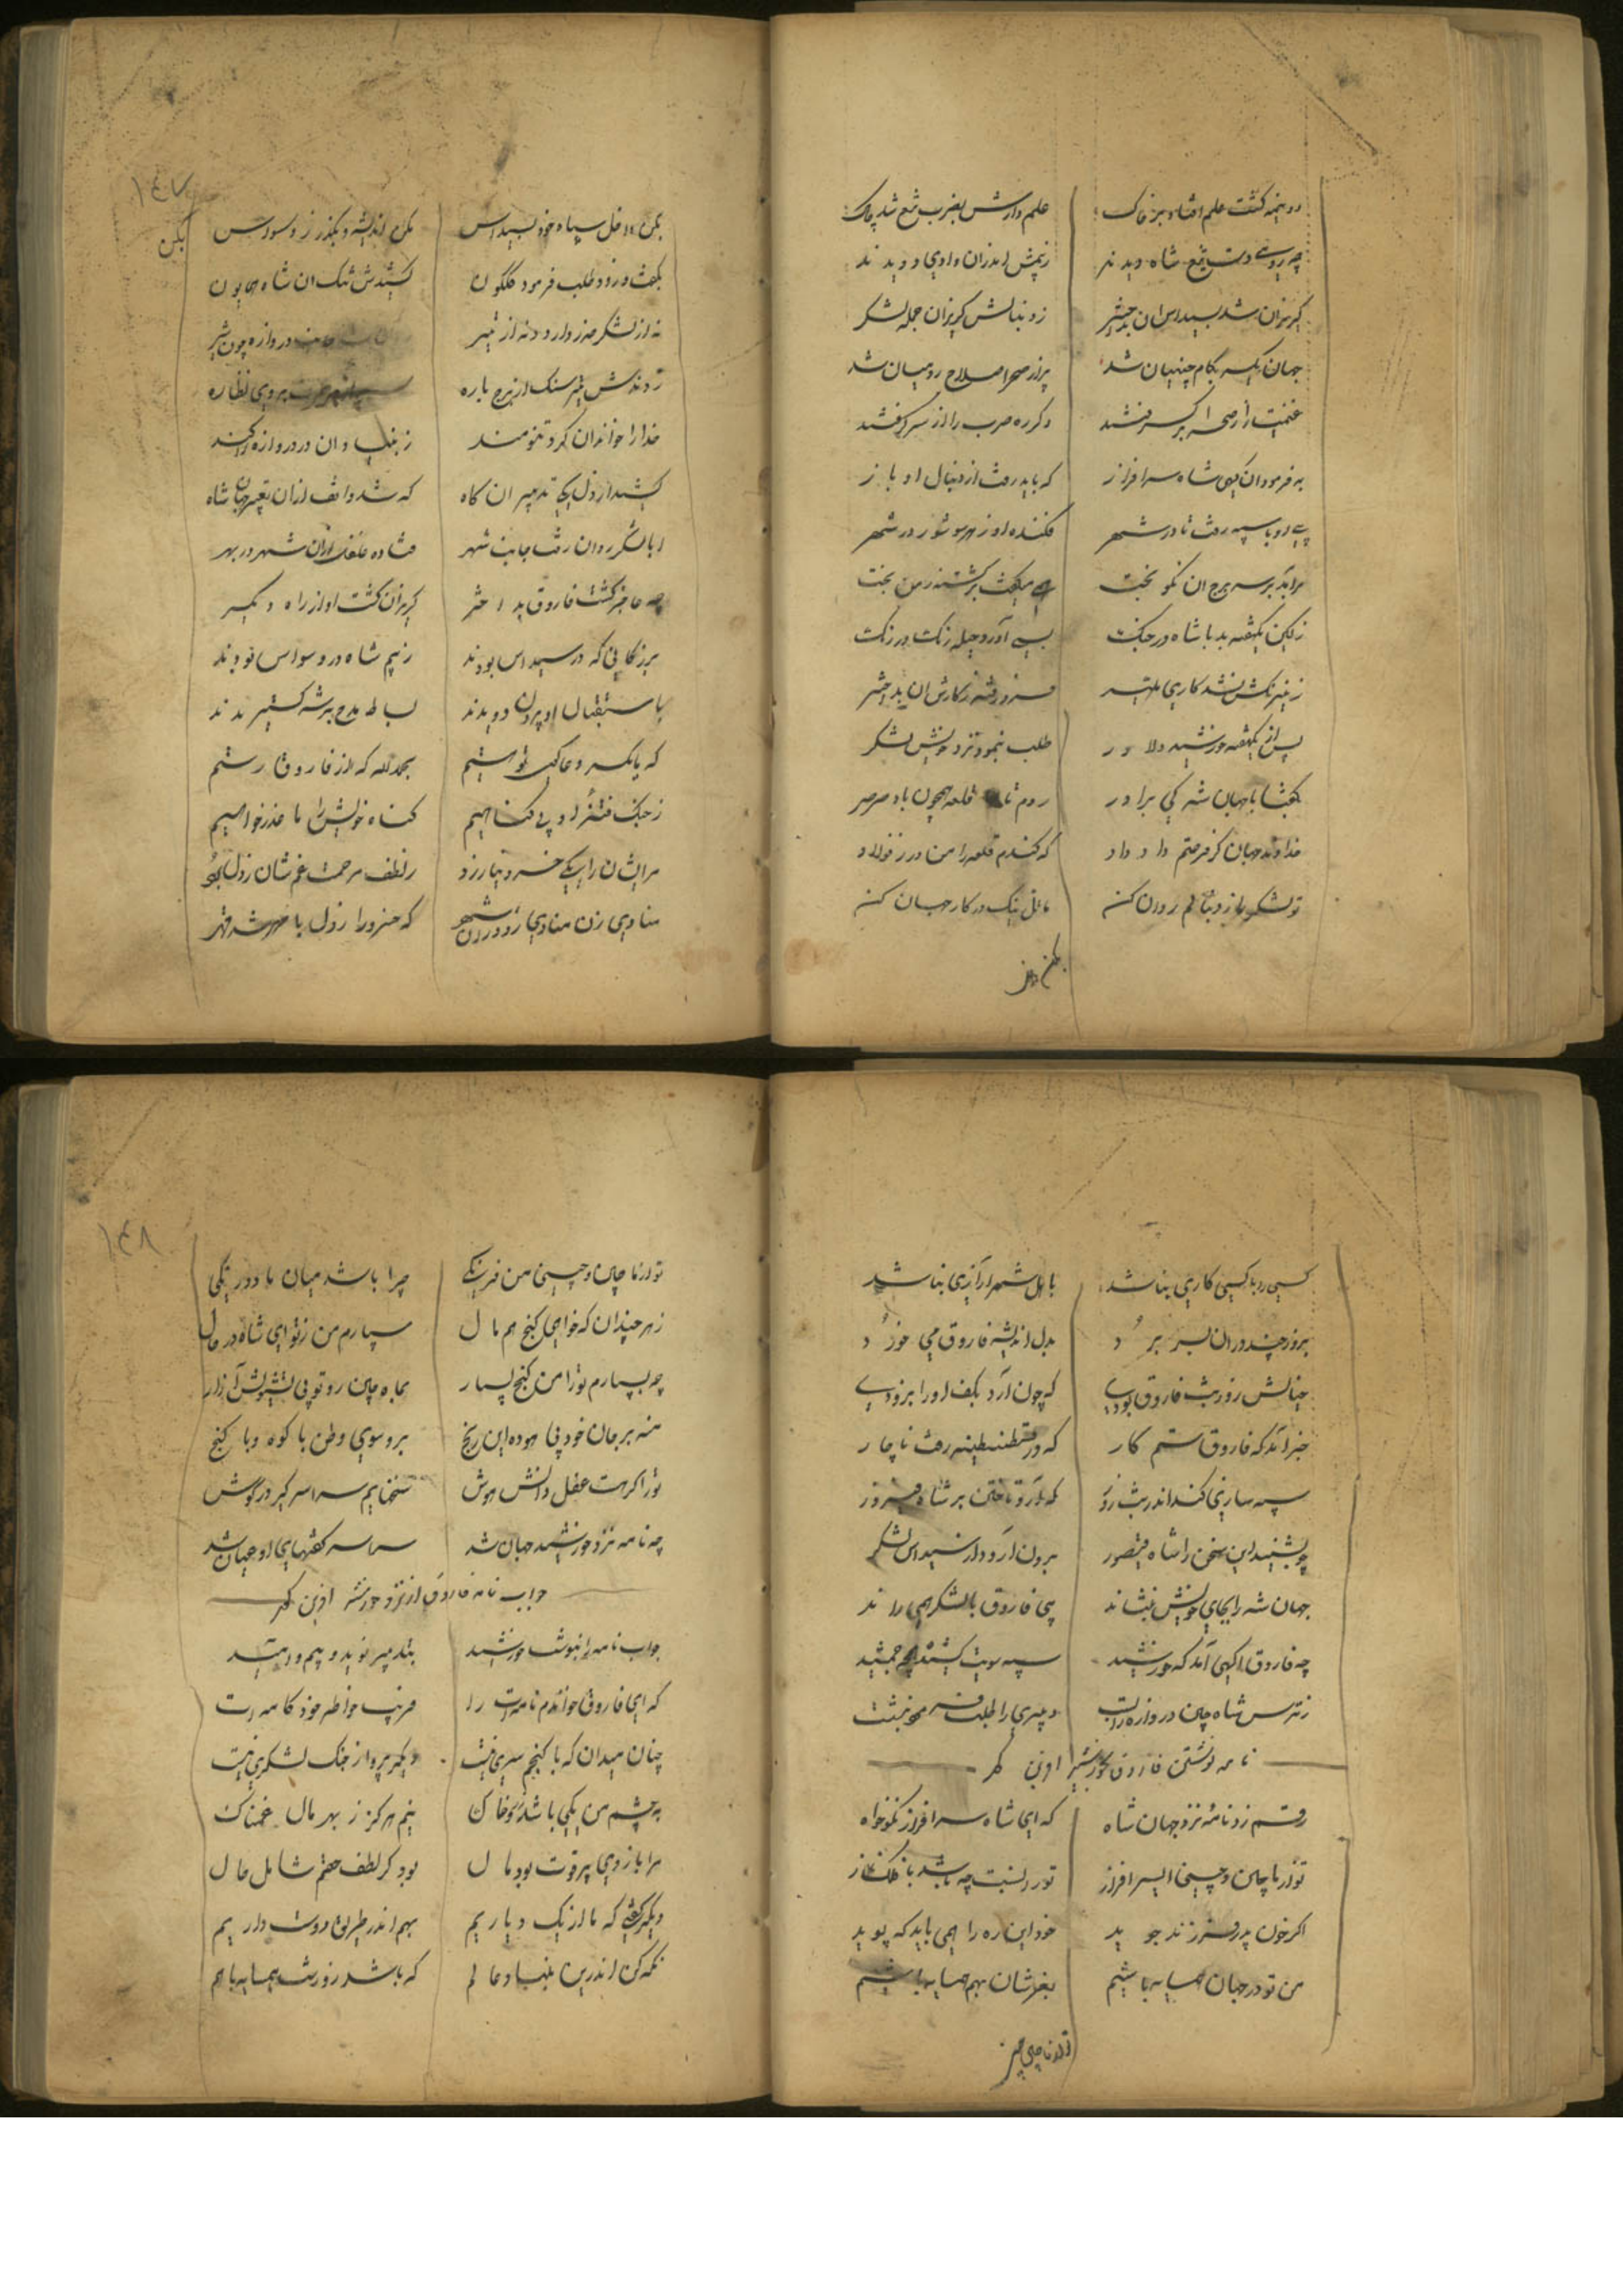 دو نیمه گشت علم افتاد بر خاک علم دارش بضرب تیغ شد چاک
چه رومی دست تیغ شاه دیدند ز پیش اندر ان وادی دویدند
گریزان شد بسیداس ان بد اختر ز دنبالش گریزان جمله لشکر
جهان یکسر بکام چینیان شد پر از صحرا سلاح رومیان شد
غنیمت را ز صحرا بر گرفتند دگر ره حرب را از سر گرفتند
بفرمود ان گهی شاه سرافراز که باید رفت از دنبال او باز
پی او با سپه رفت تا در شهر فکنده او ز هر سو شور در شهر
برآمد بر سر برج ان نگو بخت همی میگفت برگشته ز من بخت
ز کین یکهفته بد با شاه در جنگ بسی آورد حیله رنگ در رنگ
ز نیرنگش نشد کاری میسر فرو رفته ز کارش ان بد اختر
پس از یکهفته خورشید دلاور طلب بنمود نزد خویش لشکر
بگفتا با جهان شه کی برادر روم تا قلعه همچون باد صرصر
خداوند جهان گر فرصتم داد که کندم قلعه را من در ز فولاد
تو لشکر را ز دنبالم روان کن تامل نیک در کار جهان کن
بکن داخل
۱۴۷
بکن داخل سپاه خود بسیداس مکن اندیشه و بگذر ز وسواس
بگفت و زود طلب فرمود گلگون کشیدش تنگ ان شاه همایون
نه از لشکر حذر دارد نه از تیر جانب دروازه چون شیر
زدندش تیر سنگ از برج باره بروی نظاره
خدا را خواند ان گرد تنومند ز بنیاد ان در دروازه را کند
کشید از دل یکی تدبیر ان گاه که شد واقف ازان تقصیر جهان شاه
ابا لشکر روان رفت جانب شهر فتاده غلغل ازان شهر در بهر
چه حاضر گشت فاروق بد اختر گریزان گشت او از راه دیگر
بزرگانی که در سیداس بودند ز بیم شاه در وسواس بودند
باستقبال او بیرون دویدند بساط مدح بر شه گستریدند
که یا یکسر دعاگوی تو هستیم بحمدلله که از فاروق رستیم
ز جنگ فتنهٔ او بی گناهیم گناه خویش را ما عذر خواهیم
سراشان را یکی خسرو نیازرد ز لطف مرحمت غم شان ز دل برد
منادی زن منادی زد در ان شهر که خسرو را ز دل با مهر شد قهر
بکن
کسی را با کسی کاری نباشد باهل شهر آزاری نباشد
بروز چند دوران بسر برد بدل اندیشه فاروق می خورد
خیالش روز شب فاروق بودی که چون آرد بکف او را بزودی
خبر آمد که فاروق ستم کار که در قسطنطنیه رفت ناچار
سپه سازی کند اندر شب روز که آرد تاختن بر شاه فیروز
چو بشنید این سخن را شاه قیصور برون آورد از سیداس لشکر
جهان شه را بجای خویش بنشاند پی فاروق با لشکر همی راند
چه فاروق آگهی آمد که خورشید سپه سویت کشیده همچو جمشید
ز ترس شاه چین دروازه را بست دبیری را طلب فرمود بنشست
نامه نوشتن فاروق بخورشید آفرین گهر
رقم زد نامهٔ نزد جهان شاه که ای شاه سرافراز نکوخواه
تو از ماچین و چینی ای سرافراز تو را نسبت چه باشد با فلک ناز
اگر خون پدر فرزند جوید خود این ره را همی باید که پوید
من تو در جهان همسایه باشیم بعز شان بهم همسایه باشیم
تو از ماچین چینی
۱۴۸
تو از ماچین و چینی من فرنگی چرا باشد میان ما دو رنگی
ز هر چندان که خواهی گنج هم مال سپارم من ز تو ای شاه در حال
چه بسپارم تو را من گنج بسیار بماچین رو تو بی تشویش آزار
منه بر جان خود بی هوده این رنج برو سوی وطن با کوه و با گنج
تو را گر هست عقل دانش هوش سخنهایم سراسر گیر در گوش
چه نامه نزد خورشید جهان شد سراسر گفتهای او عیان شد
جواب نامه فاروق از نزد خورشید آفرین گهر
جواب نامه را بنوشت خورشید بتدبیر نوید و بیم و امید
که ای فاروق خواندم نامه ات را فریب خاطر خود کامه ات را
چنان میدان که با گنجم سری نیست دگر پروا ز جنگ لشکری نیست
به چشم من یکی باشد زر و خاک نیم هرگز ز بهر مال غمناک
مرا بازوی پر قوت بود مال بود گر لطف حقم شامل حال
دگر گفتی که ما از یک دیاریم بهم اندر طریق دوست داریم
نگه کن اندرین بنیاد عالم که باشد روز شب همسایه با هم